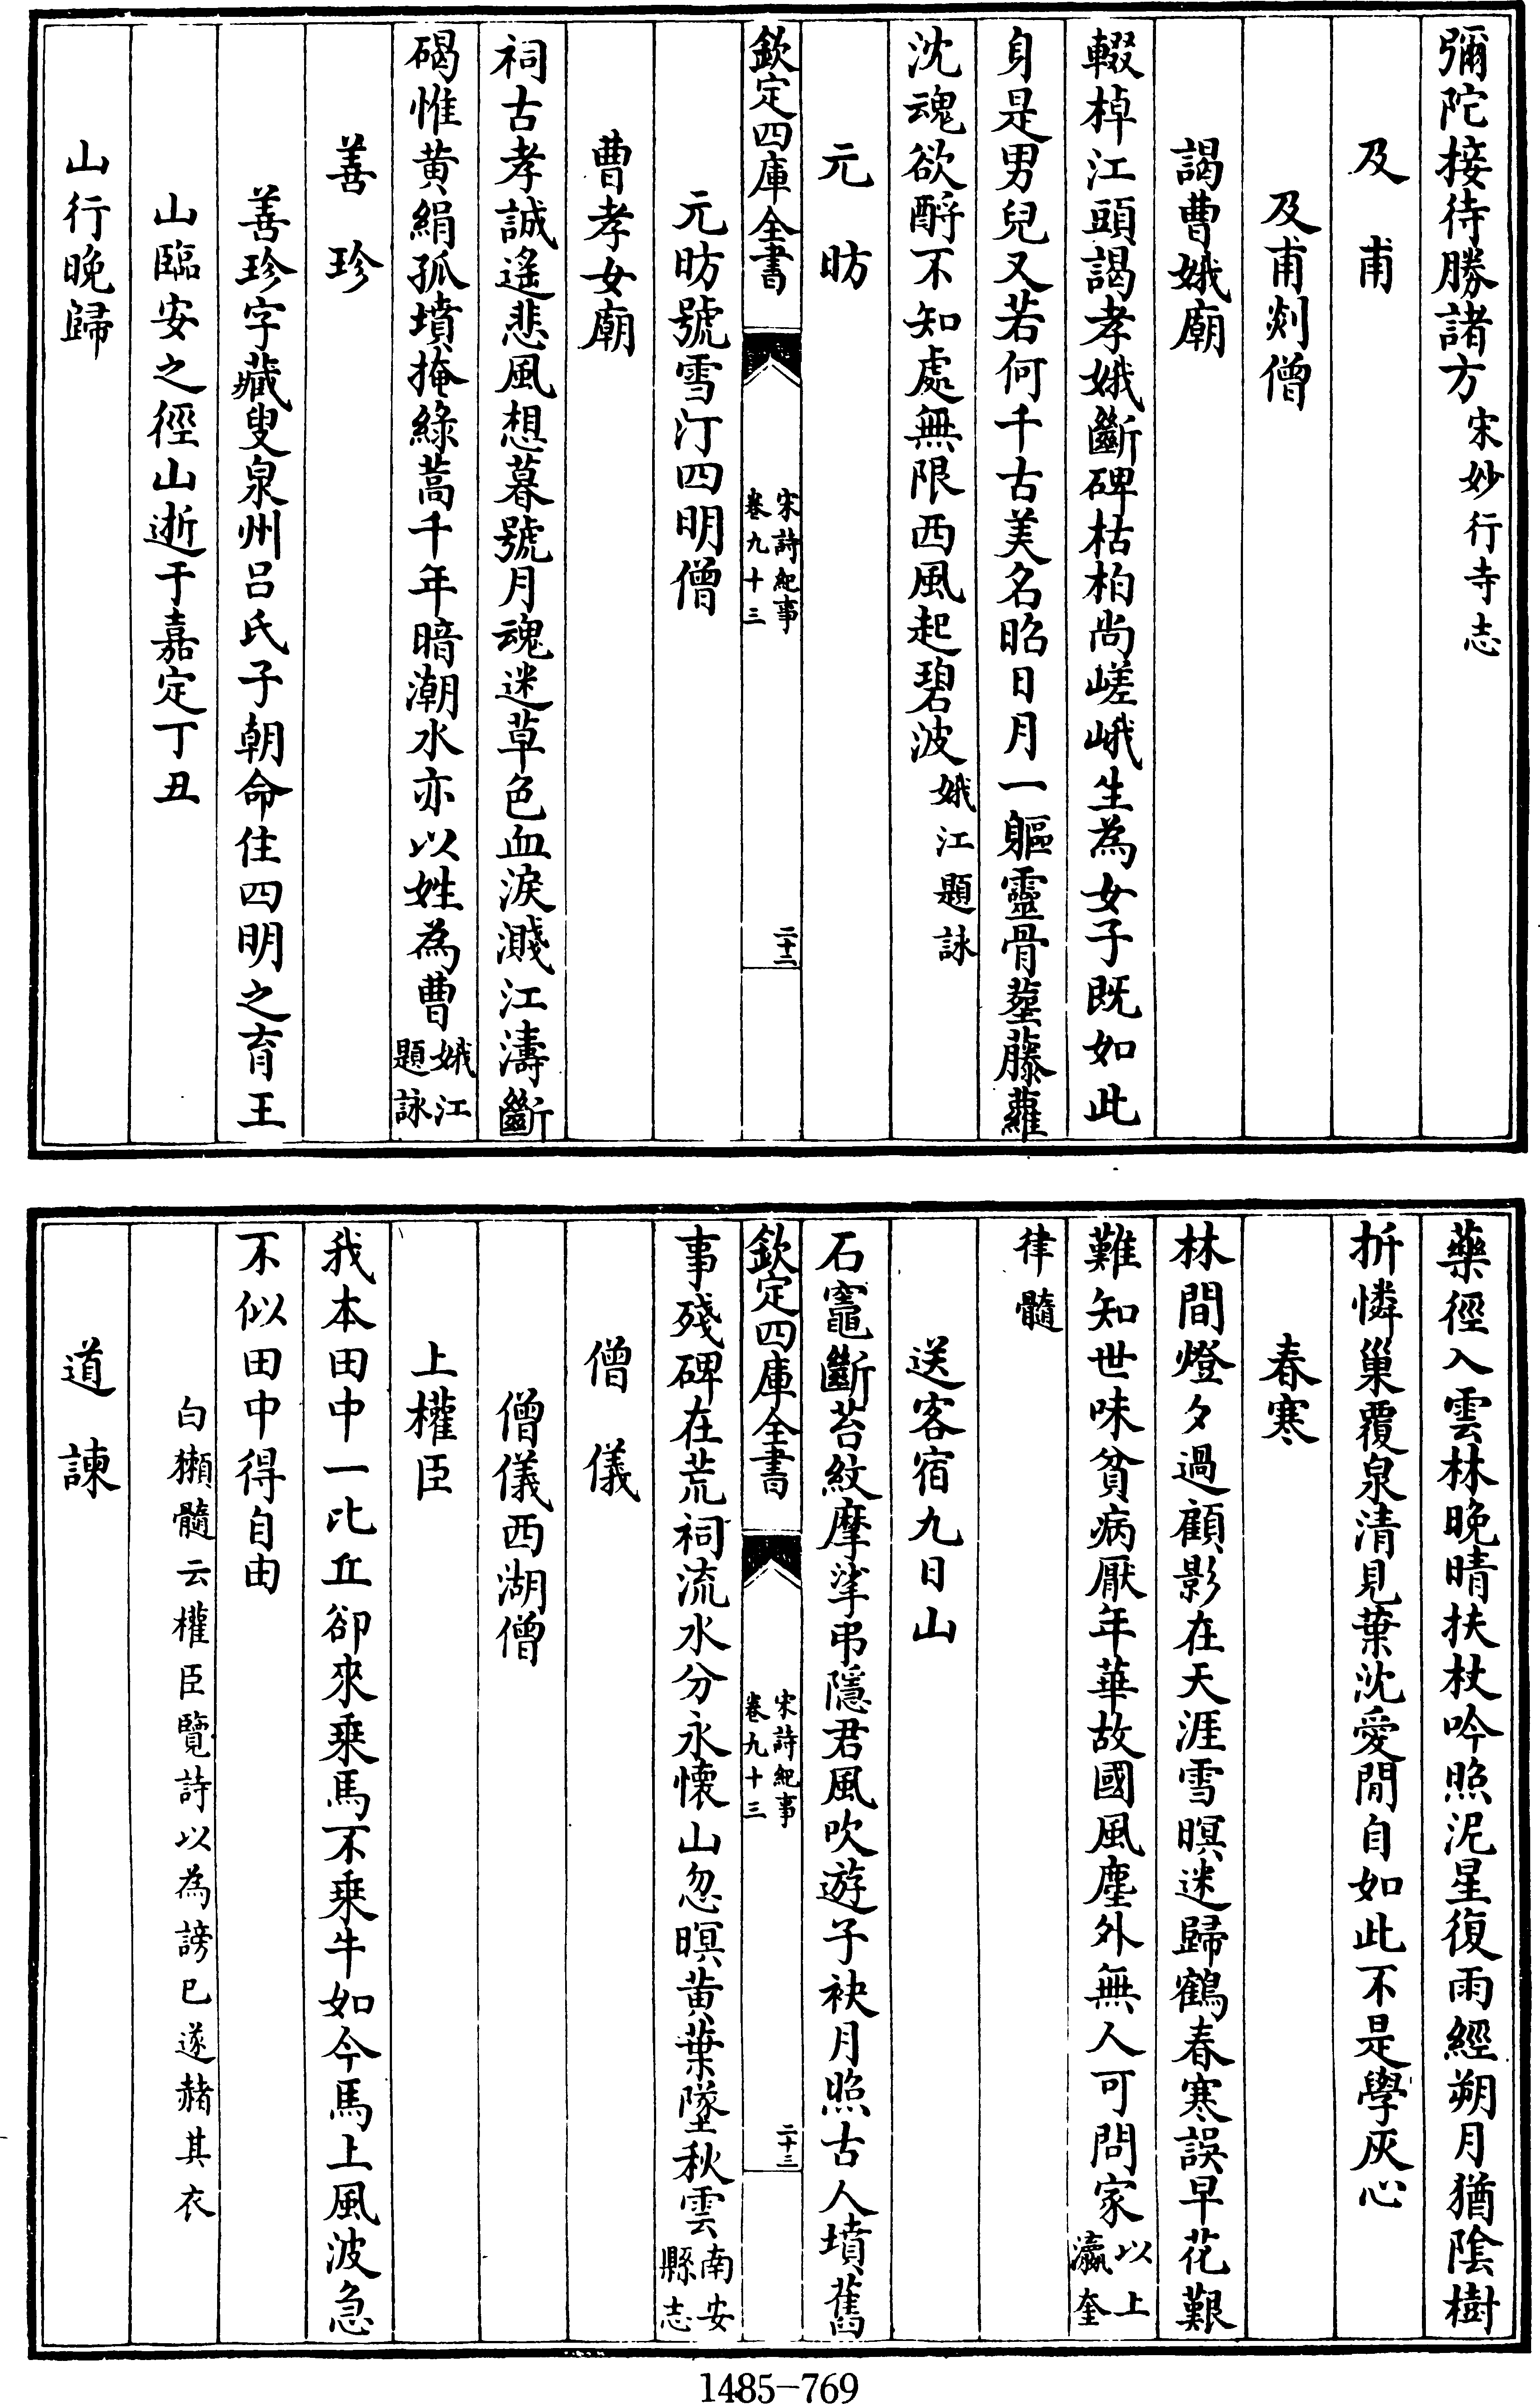 彌陀接待勝諸方宋妙行寺志
及甫
及甫剡僧
謁曹娥廟
輟棹江頭謁孝娥斷碑枯柏尚嵯峨生為女子既如此
身是男兒又若何千古美名昭日月一軀靈骨葬藤蘿
沈魂欲酹不知處無限西風起碧波娥江題詠
元昉
欽定四庫全書
宋詩紀事
卷九十三
二十二
元昉號雪汀四明僧
曹孝女廟
祠古孝誠遙悲風想暮號月魂迷草色血淚濺江濤斷
碣惟黄絹孤墳掩綠蒿千年暗潮水亦以姓為曹娥江題詠
善珍
善珍字藏叟泉州呂氏子朝命住四明之育王
山臨安之徑山逝于嘉定丁丑
山行晚歸
藥徑入雲林晚晴扶杖吟照泥星復雨經朔月猶陰樹
折憐巢覆泉清見葉沈愛閒自如此不是學灰心
春寒
林間燈夕過顧影在天涯雪暝迷歸鶴春寒誤早花艱
難知世味貧病厭年華故國風塵外無人可問家以上瀛奎
律髓
送客宿九日山
石竈斷苔紋摩挲弔隱君風吹遊子袂月照古人墳舊
欽定四庫全書
宋詩紀事
卷九十三
二十三
事殘碑在荒祠流水分永懷山忽暝黄葉墜秋雲南安縣志
僧儀
僧儀西湖僧
上權臣
我本田中一比丘卻來乗馬不乗牛如今馬上風波急
不似田中得自由
白獺髓云權臣覽詩以為謗已遂赭其衣
道諫
1485-769